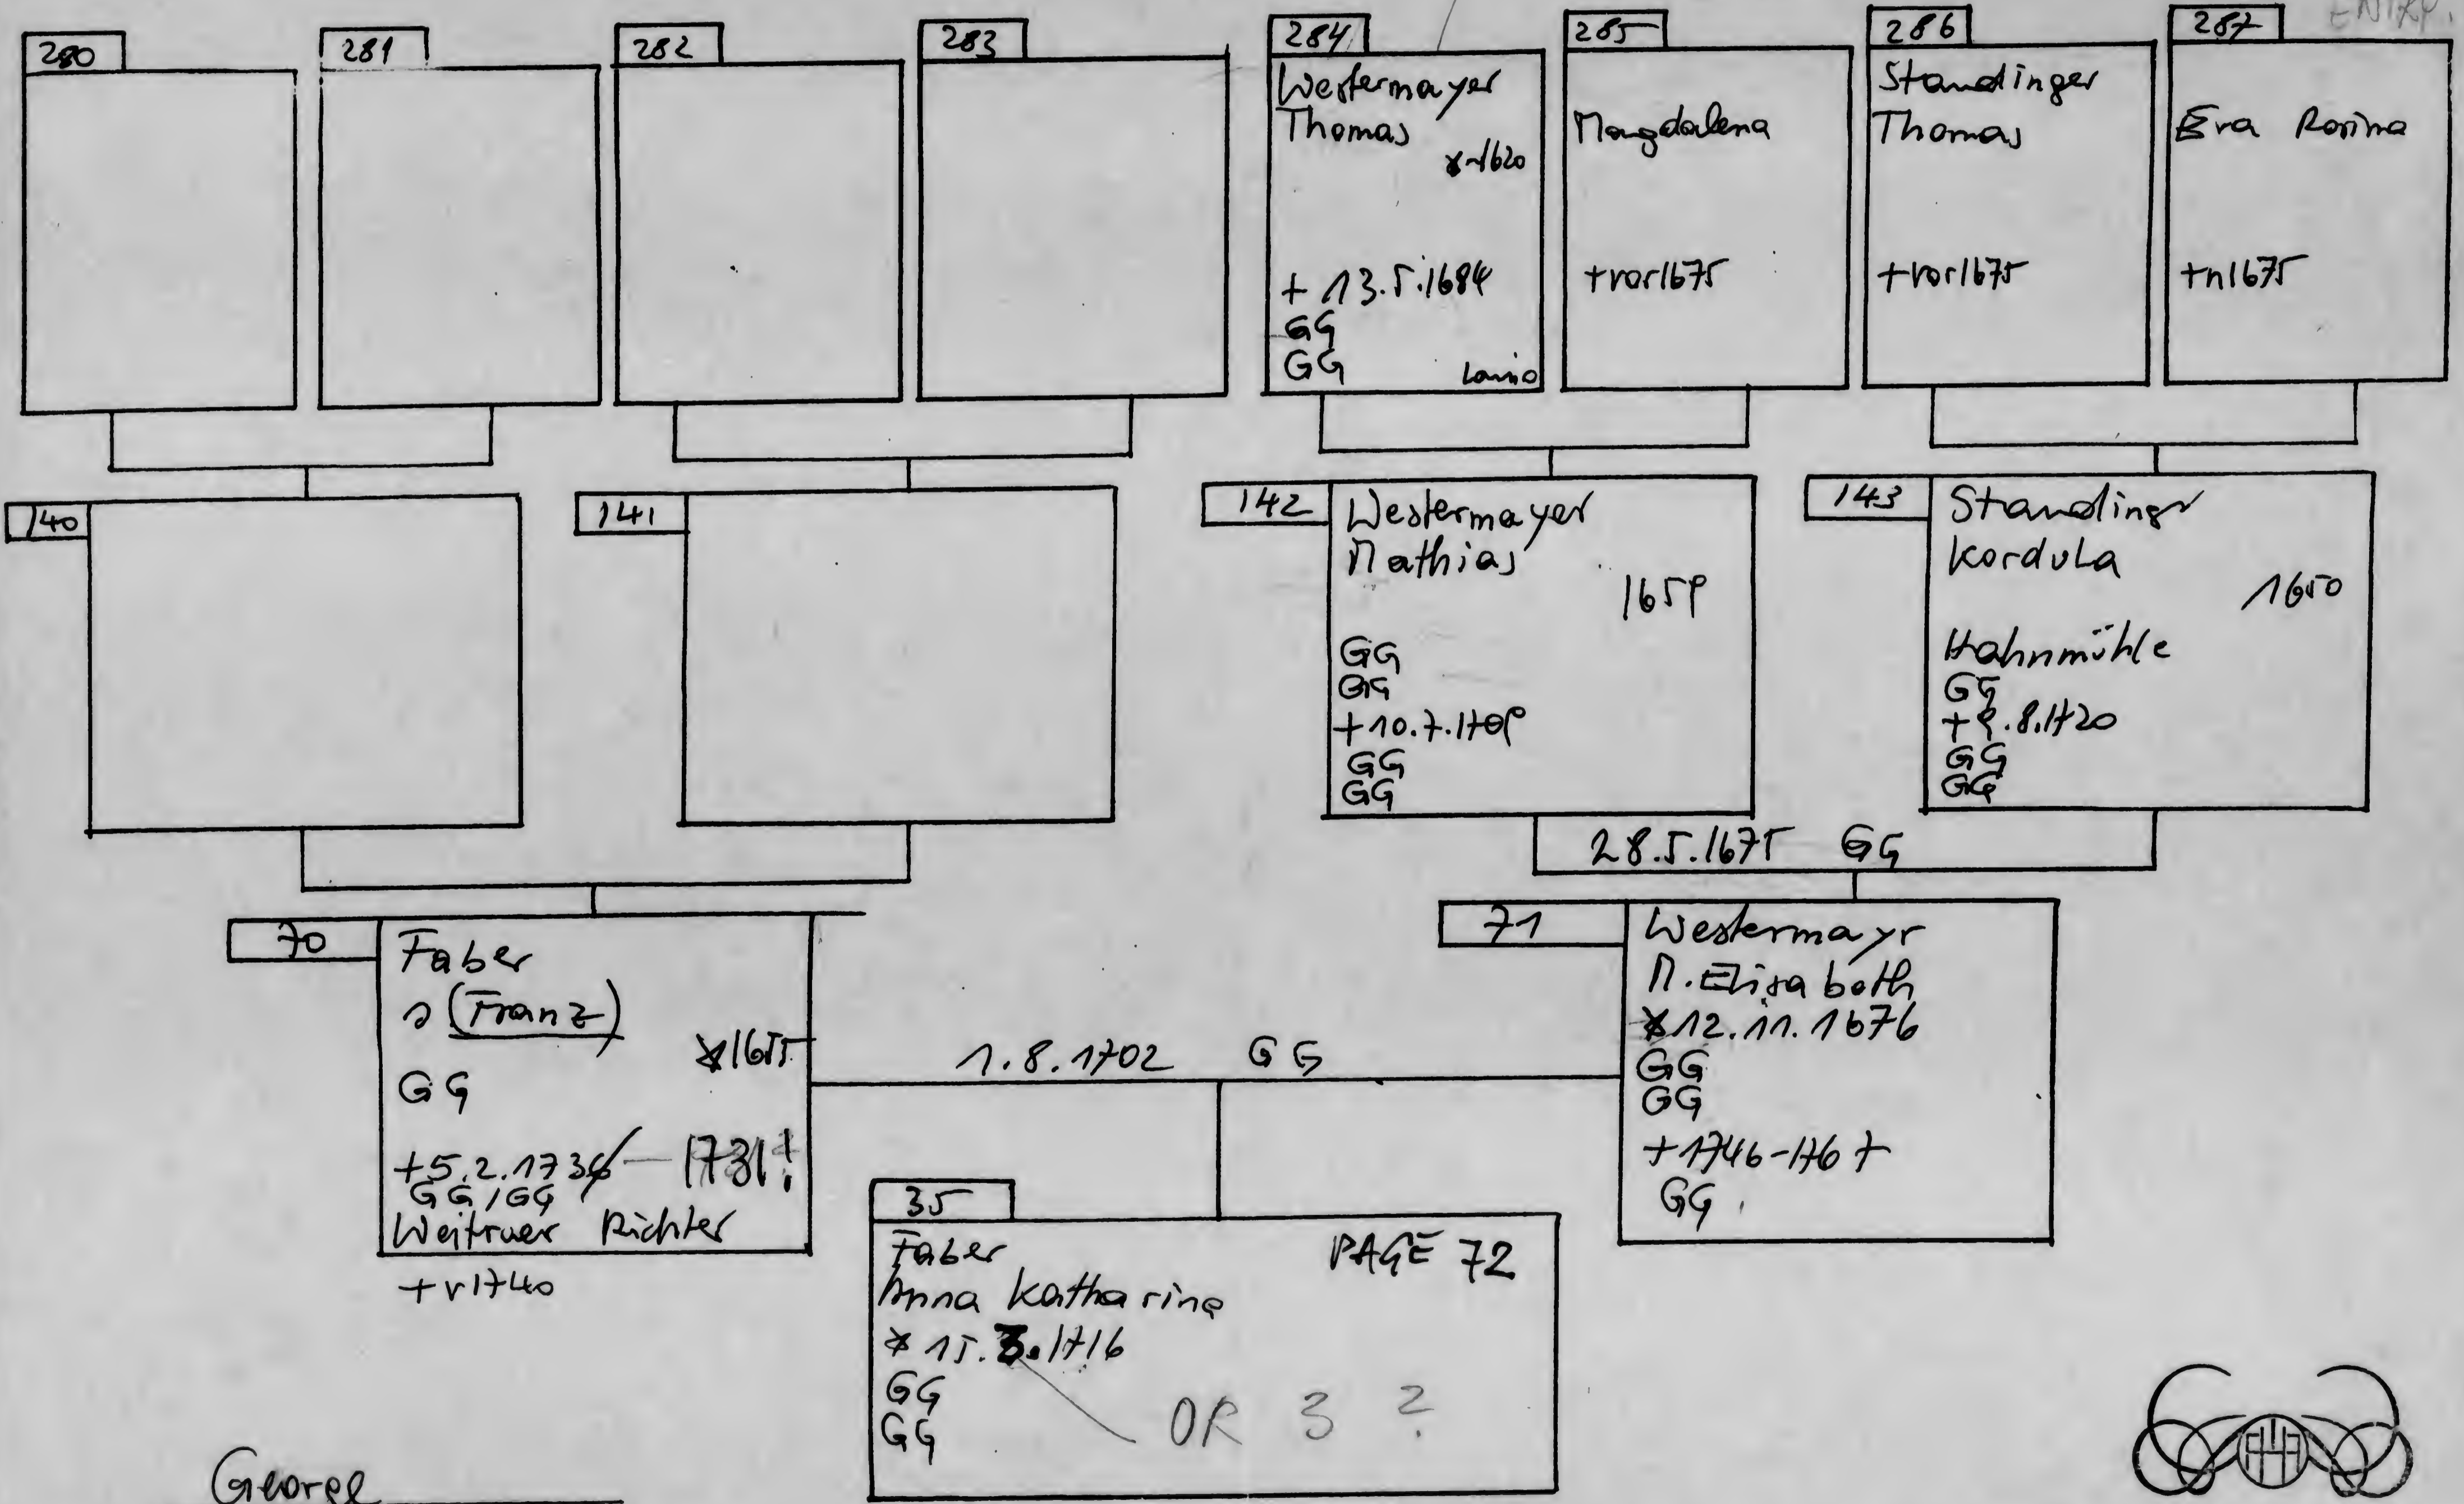 ENTRP.
280
281
282
283
284
Westermayer
Thomas
*~1620
+ 13.5.1684
GG
GG
285
Magdalena
+vor1675
286
Standinger
Thomas
+vor1675
287
Eva Rosina
+n1675
140
141
142
Westermayer
Mathias
1659
GG
GG
+10.7.1709
GG
GG
143
Standinger
Kordula
1650
Hahnmühle
GG
+9.8.1720
GG
GG
28.5.1675 GG
70
Faber
(Franz)
*1655
GG
+5.2.1736 — 1731!
GG/GG
Richter
+v1740
1.8.1702 GG
71
Westermayr
M. Elisabeth
*12.11.1676
GG
GG
+1746-1767
GG
35
Faber PAGE 72
Anna Katharina
* 15.3.1716
GG
GG
OR 3 ?
George